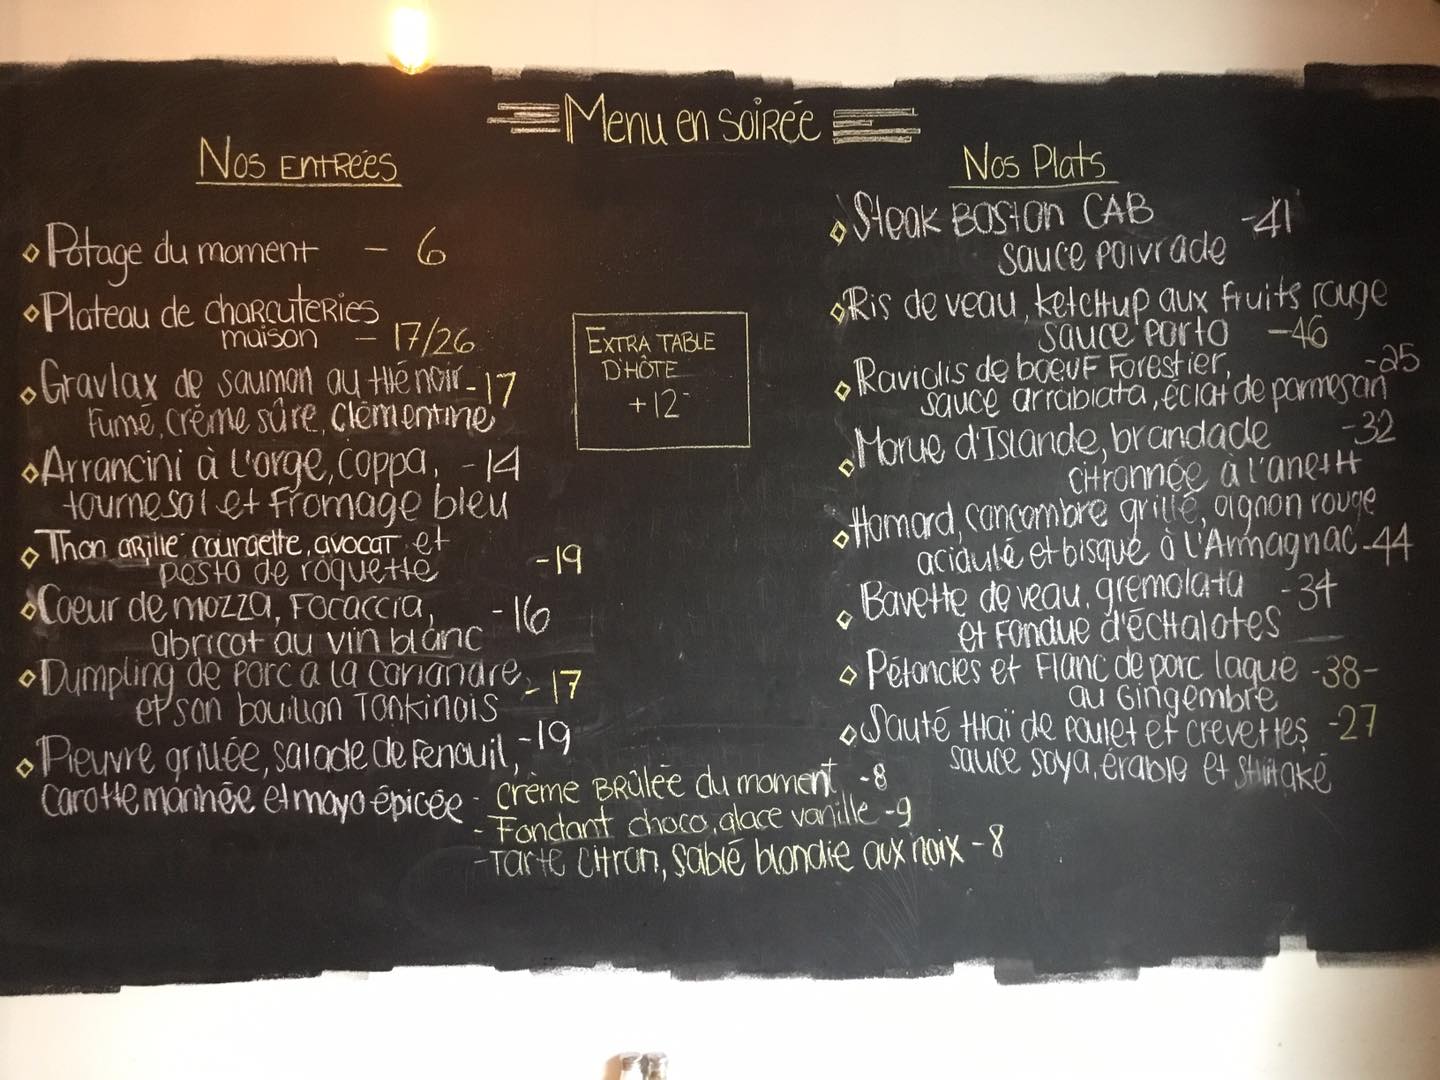 Menu en soirée
Nos Entrées
Potage du moment - 6
Plateau de charcuteries
maison - 17/26
Gravlax de saumon au thé noir - 17
fumé, crème sûre, clémentine
Arrancini à l'orge, coppa, - 14
tournesol et fromage bleu
Thon grillé courgette, avocat et
pesto de roquette - 19
Coeur de mozza, focaccia, - 16
abricot au vin blanc
Dumpling de porc a la coriandre, - 17
et son bouillon Tonkinois
Pieuvre grillée, salade de fenouil, - 19
carotte marinée et mayo épicée
Extra table
d'hôte
+12
Nos Plats
Steak Boston CAB - 41
sauce poivrade
Ris de veau, ketchup aux fruits rouge
sauce porto - 46
Raviolis de boeuf forestier, - 25
sauce arrabiata, éclat de parmesan
Morue d'Islande, brandade - 32
citronnée à l'aneth
Homard, concombre grillé, oignon rouge
acidulé et bisque à l'Armagnac - 44
Bavette de veau, gremolata - 34
et fondue d'échalotes
Pétoncles et flanc de porc laqué - 38 -
au gingembre
Sauté thaï de poulet et crevettes - 27
sauce soya, érable et shiitaké
- crème brûlée du moment - 8
- Fondant choco, glace vanille - 9
- Tarte citron, sablé blondie aux noix - 8